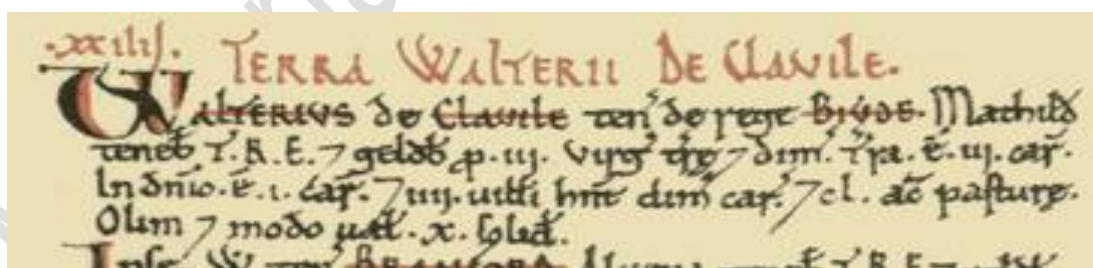 .xxiiij. TERRA WALTERII DE CLAVILE.
WALTERIVS de Clavile ten' de rege BIVDE. Mathild
teneb T.R.E. ⁊ geldb p. iij. virg' ⁊ dim. T'ra. ē. iij. car̄.
In dn̄io. ē. i. car̄. ⁊ iiij. uilli hn̄t dim̄ car̄. ⁊ cl. ac̄ pasturę.
Olim ⁊ modo ual̄. x. solid̄.
Ipse W. ten' T.R.E.